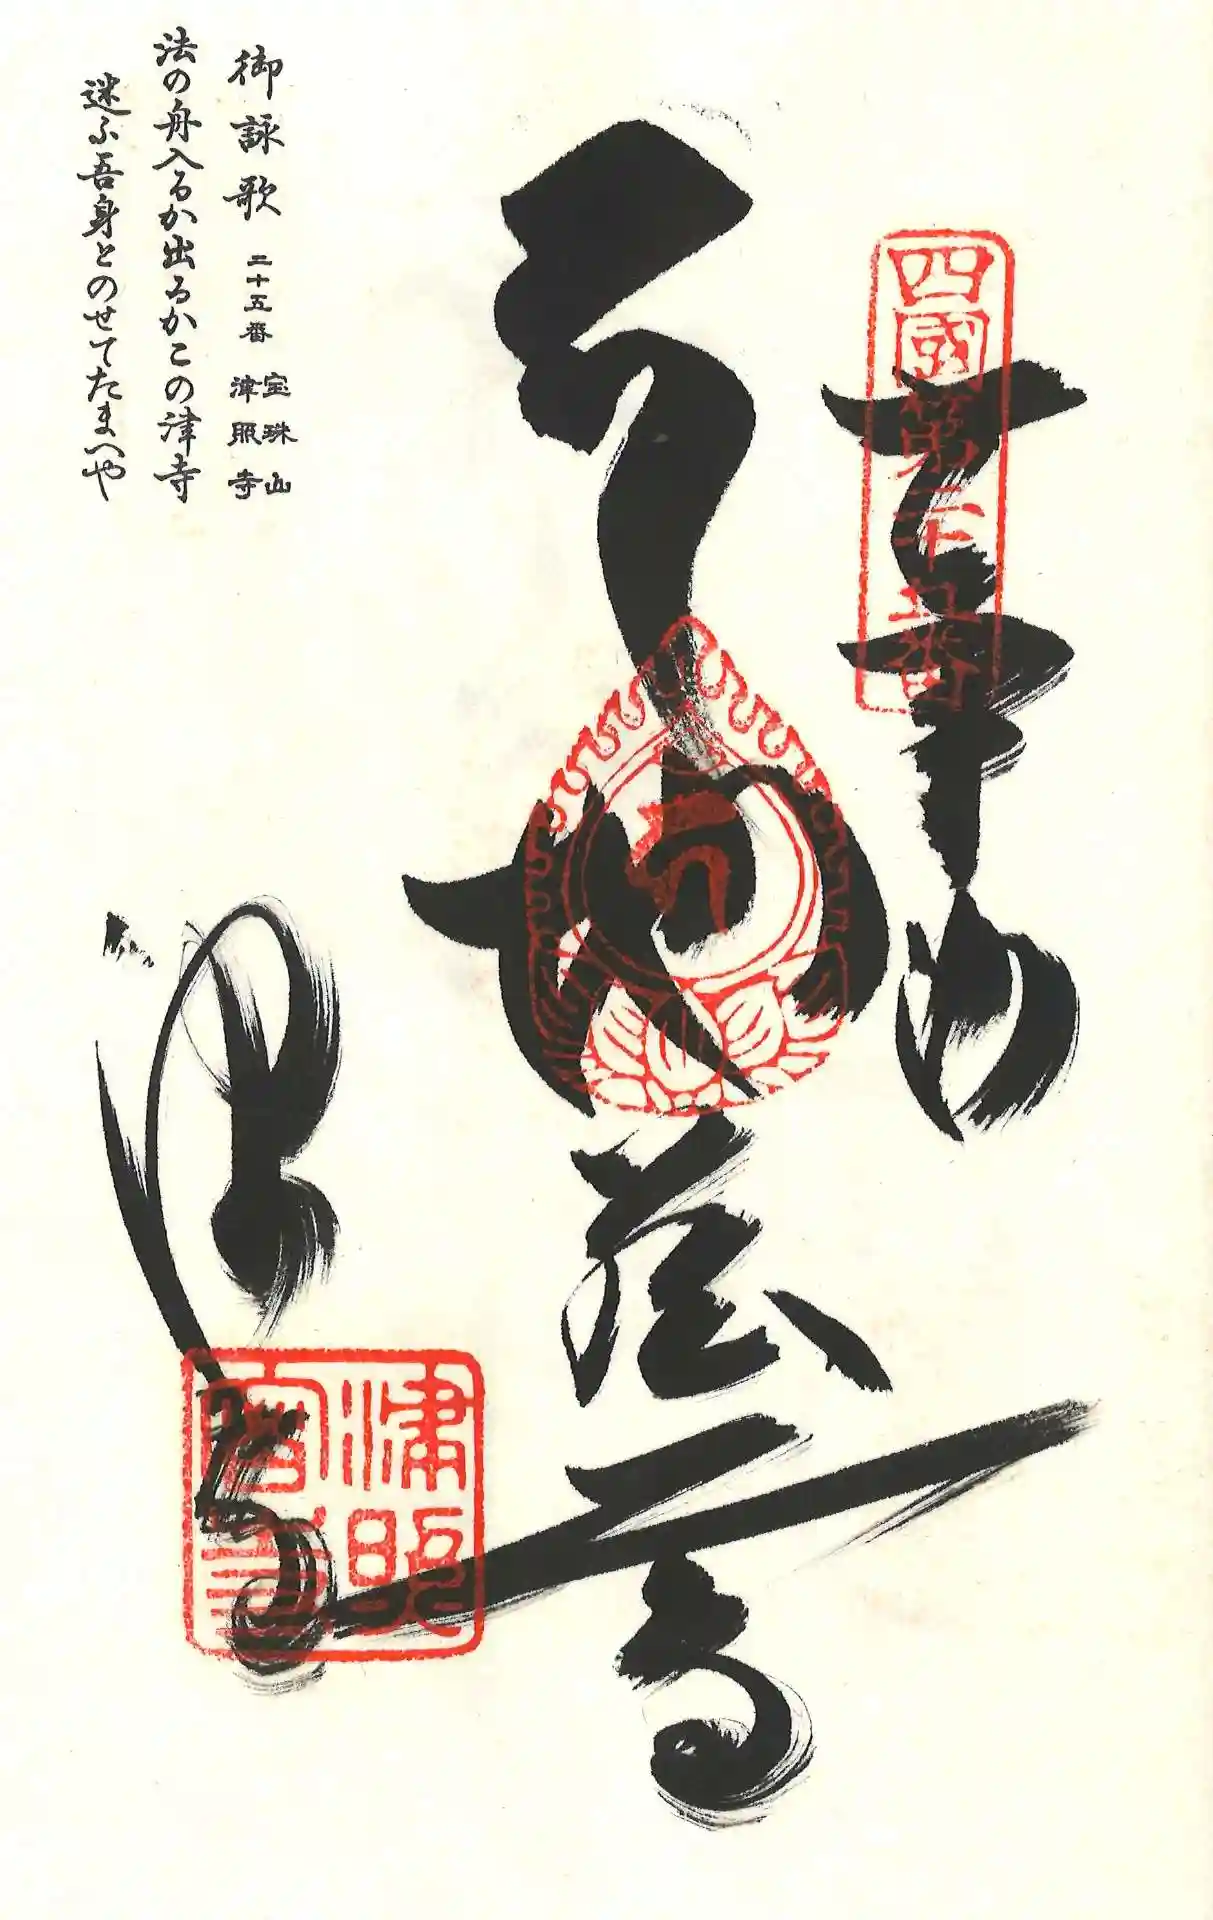 四國第二十五番
奉納
地蔵尊
津寺
津照密寺
御詠歌 二十五番 宝珠山 津照寺
法の舟入るか出るかこの津寺
迷ふ吾身とのせてたまへや